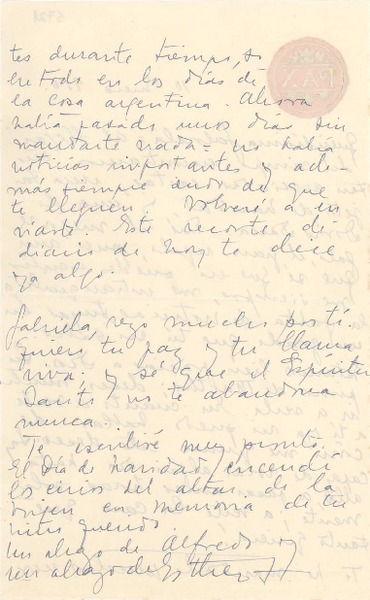 tes durante tiempo, so
bre todo en los días de
la cosa argentina. Ahora
había pasado unos días sin
mandarte nada = no había
noticias importantes y ade-
más siempre dudo de que
te lleguen. Volveré a en-
viarte. Este recorte de
diario de hoy te dice
ya algo.
Gabriela, rezo mucho por ti.
Quiero tu paz y tu llama
viva; y sé que el Espíritu
Santo no te abandona
nunca.
Te escribiré muy pronto.
El Día de Navidad encendí
los cirios del altar de la
Virgen en memoria de tu
niño querido.
Un abrazo de Alfredo y
un abrazo de Esther
PAX